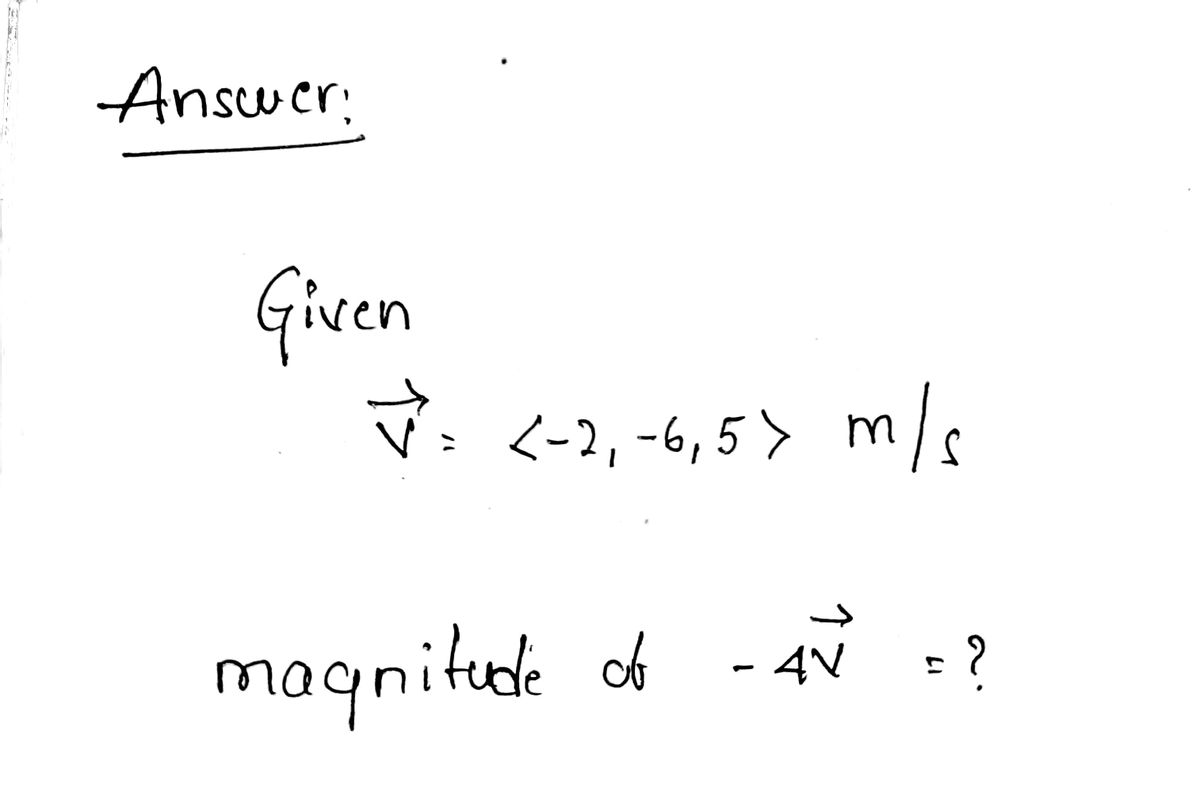 Answer:
Given
V⃗ = <-2, -6, 5> m/s
magnitude of -4V⃗ = ?